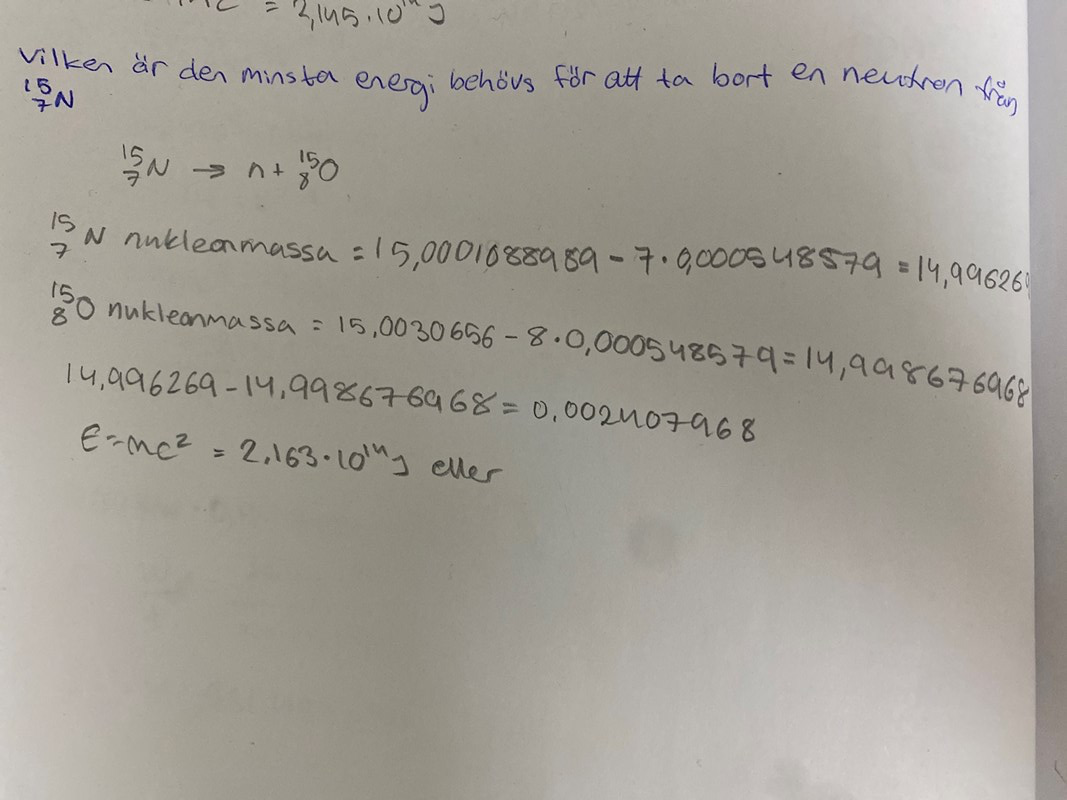 = 2,145·10¹⁴J
Vilken är den minsta energi behövs för att ta bort en neutron från
¹⁵₇N
¹⁵₇N → n + ¹⁵₈O
¹⁵₇N nukleonmassa = 15,0001088989 - 7·0,000548579 = 14,996269
¹⁵₈O nukleonmassa = 15,0030656 - 8·0,000548579 = 14,998676968
14,996269 - 14,998676968 = 0,002407968
E=mc² = 2,163·10¹⁴J eller